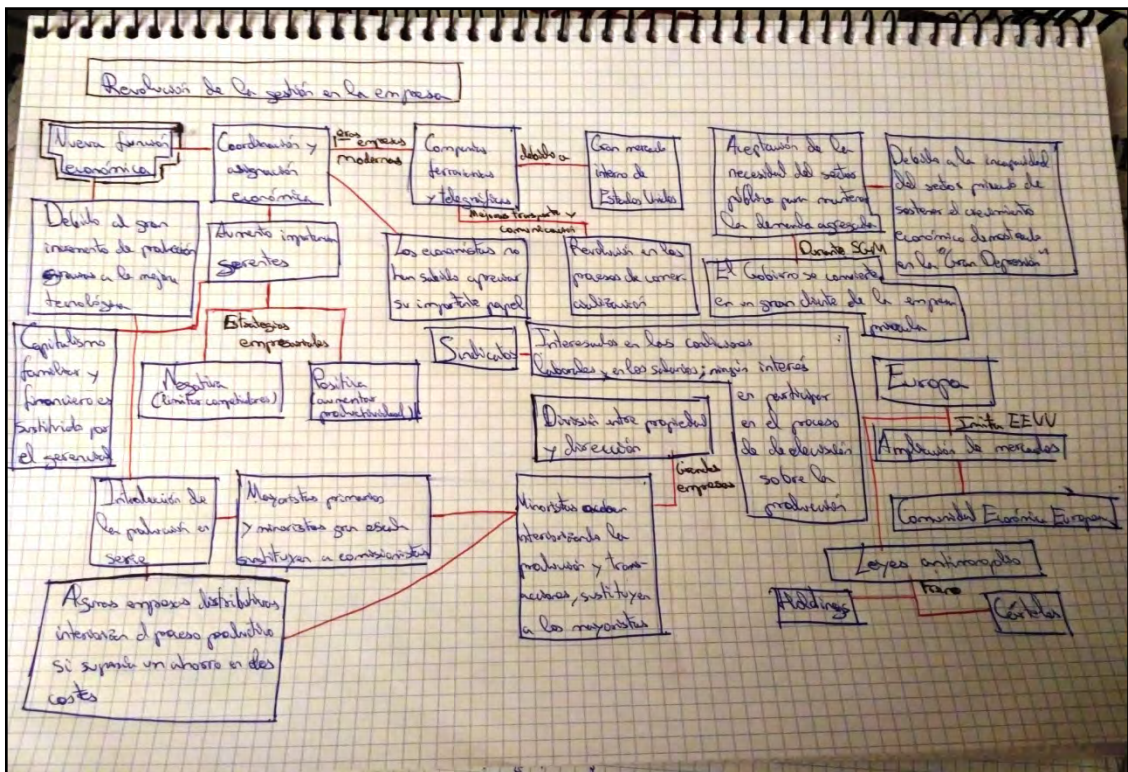 Revolución de la gestión en la empresa
Nueva función
económica
Coordinación y
asignación
económica
1eras empresas
modernas
Compañías
ferroviarias
y telegráficas
debido a
Gran mercado
interno de
Estados Unidos
Aceptación de la
necesidad del sector
público para mantener
la demanda agregada
Debido a la incapacidad
del sector privado de
sostener el crecimiento
económico demostrada
en la "Gran Depresión"
Debido al gran
incremento de producción
gracias a la mejora
tecnológica
Aumento importancia
gerentes
Los economistas no
han sabido apreciar
su importante papel
Mejoras transporte y
comunicación
Revolución en los
procesos de comer-
cialización
Durante SGM
El Gobierno se convierte
en un gran cliente de la empresa
privada
Capitalismo
familiar y
financiero es
sustituido por
el gerencial
Estrategias
empresariales
Negativa
(limitar competidores)
Positiva
(aumentar
productividad)
Sindicatos
Interesados en las condiciones
laborales y en los salarios; ningún interés
en participar
en el proceso
de decisión
sobre la
producción
Europa
Imitar EEUU
Ampliación de mercados
Comunidad Económica Europea
División entre propiedad
y dirección
Grandes
empresas
Introducción de
la producción en
serie
Mayoristas primarios
y minoristas gran escala
sustituyen a comisionistas
Minoristas acaban
interiorizando la
producción y tran-
sacciones, sustituyen
a los mayoristas
Leyes antimonopolio
Holdings
Cárteles
Algunas empresas distributivas
interiorizan el proceso productivo
si suponía un ahorro en los
costes